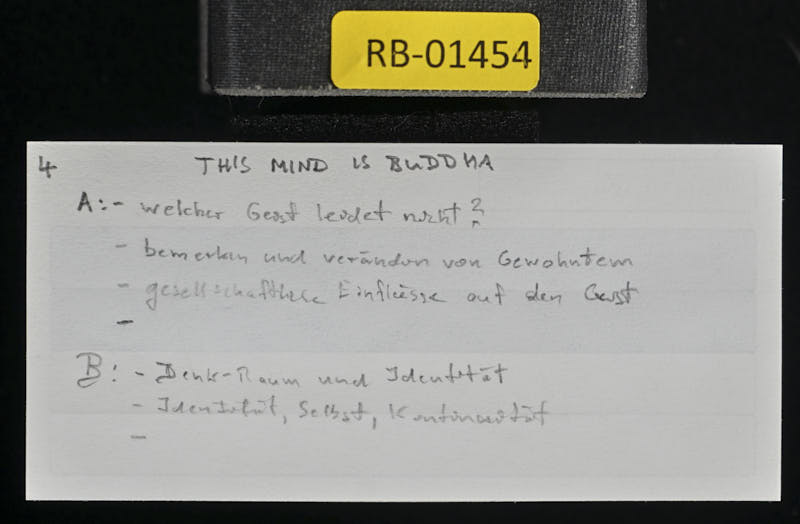 RB-01454
4 THIS MIND IS BUDDHA
A: - welcher Geist leidet nicht?
- bemerken und verändern von Gewohntem
- gesellschaftliche Einflüsse auf den Geist
-
B: - Denk-Raum und Identität
- Identität, Selbst, Kontinuität
-